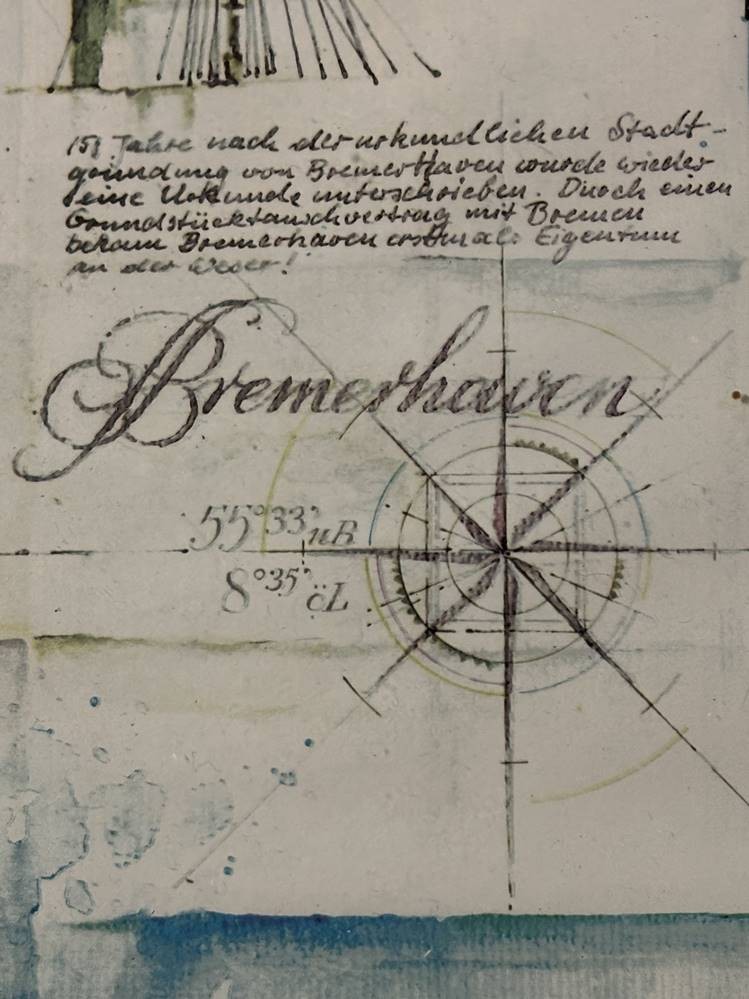 151 Jahre nach der urkundlichen Stadt-
gründung von Bremerhaven wurde wieder
eine Urkunde unterschrieben. Durch einen
Grundstücktauschvertrag mit Bremen
bekam Bremerhaven erstmals Eigentum
an der Weser!
Bremerhaven
55°33' nB
8°35' öL